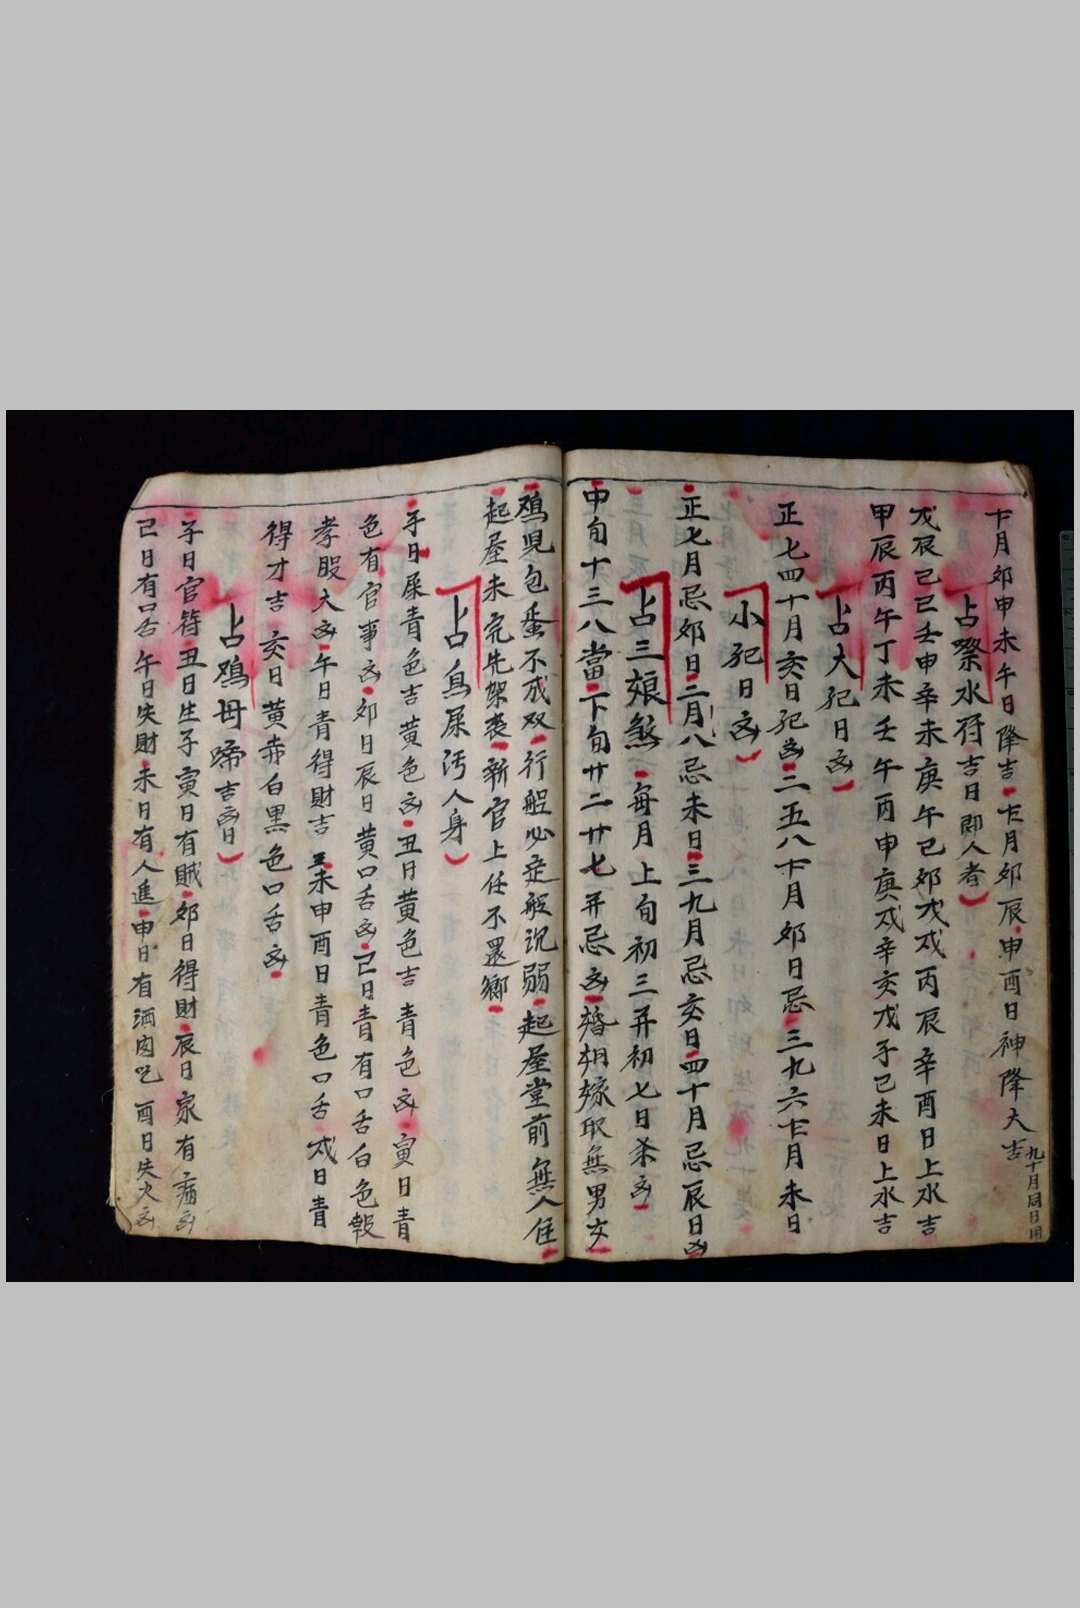 十月卯申未午日降吉十一月卯辰申酉日神降大吉九十月同日用
占祭水符吉日郎人者
戊辰己巳壬申辛未庚午己卯戊戌丙辰辛酉日上水吉
甲辰丙午丁未壬午丙申庚戌辛亥戊子己未日上水吉
占大犯日凶
正七四十月亥日犯凶二五八十一月卯日忌三九六十二月未日
小犯日凶
正七月忌卯日二月八忌未日三九月忌亥日四十月忌辰日凶
占三娘煞每月上旬初三并初七日杀凶
中旬十三八當下旬廿二廿七并忌凶婚姻嫁取無男女
鸡児包蛋不成双行船必定船沉弱起屋堂前無人住
起屋未完先架丧新官上任不還鄉
占鳥屎污人身
子日屎青色吉黄色凶丑日黄色吉青色凶寅日青
色有官事凶卯日辰日黄口舌凶己日青有口舌白色報
孝服大凶午日青得財吉未申酉日青色口舌戌日青
得才吉亥日黄赤白黑色口舌凶
占鸡母啼吉凶日
子日官符丑日生子寅日有賊卯日得財辰日家有病凶
己日有口舌午日失財未日有人進申日有酒肉吃酉日失火凶